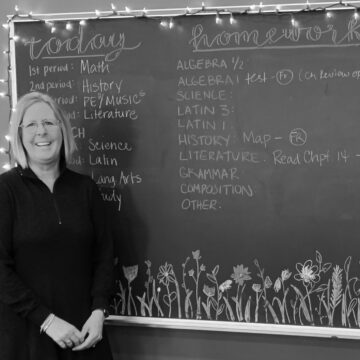 today
1st period: Math
2nd period: History
period: PE/MUSIC
period: Literature
CH
Science
Latin
Lang Arts
homework
ALGEBRA 1/2
ALGEBRA 1 test - Fr (Ch review op
SCIENCE:
LATIN 3:
LATIN 1:
HISTORY: Map - FR
LITERATURE: Read Chpt. 14 -
GRAMMAR
COMPOSITION
OTHER: